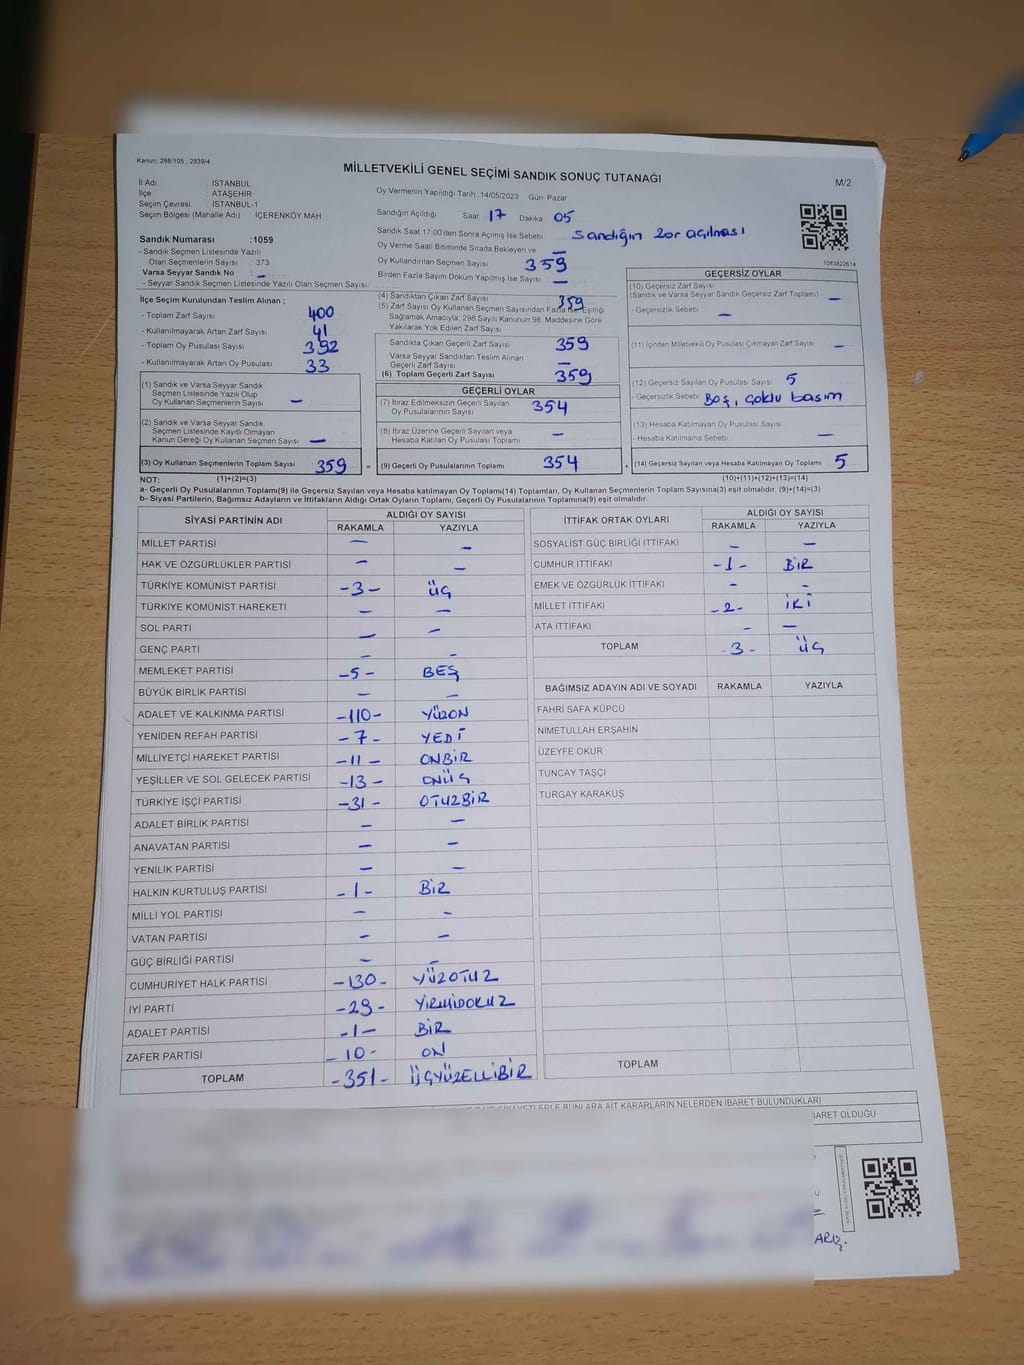 Kanun: 298/105 , 2839/4
MİLLETVEKİLİ GENEL SEÇİMİ SANDIK SONUÇ TUTANAĞI
M/2
İl Adı İSTANBUL
İlçe ATAŞEHİR
Seçim Çevresi İSTANBUL-1
Seçim Bölgesi (Mahalle Adı) İÇERENKÖY MAH.
Oy Vermenin Yapıldığı Tarih 14/05/2023 Gün Pazar
Sandığın Açıldığı Saat 17 Dakika 05
Sandık Saat 17:00'den Sonra Açılmış İse Sebebi Sandığın zor açılması
Oy Verme Saati Bitiminde Sırada Bekleyen ve —
Oy Kullandırılan Seçmen Sayısı 359
Birden Fazla Sayım Döküm Yapılmış İse Sayısı —
1083822614
Sandık Numarası :1059
- Sandık Seçmen Listesinde Yazılı
Olan Seçmenlerin Sayısı : 373
Varsa Seyyar Sandık No : —
- Seyyar Sandık Seçmen Listesinde Yazılı Olan Seçmen Sayısı:
İlçe Seçim Kurulundan Teslim Alınan ;
- Toplam Zarf Sayısı 400
- Kullanılmayarak Artan Zarf Sayısı 41
- Toplam Oy Pusulası Sayısı 392
- Kullanılmayarak Artan Oy Pusulası 33
(1) Sandık ve Varsa Seyyar Sandık
Seçmen Listesinde Yazılı Olup
Oy Kullanan Seçmenlerin Sayısı —
(2) Sandık ve Varsa Seyyar Sandık
Seçmen Listesinde Kayıtlı Olmayan
Kanun Gereği Oy Kullanan Seçmen Sayısı —
(3) Oy Kullanan Seçmenlerin Toplam Sayısı 359 =
(4) Sandıktan Çıkan Zarf Sayısı 359
(5) Zarf Sayısı Oy Kullanan Seçmen Sayısından Fazla İse, Eşitliği
Sağlamak Amacıyla, 298 Sayılı Kanunun 98. Maddesine Göre
Yakılarak Yok Edilen Zarf Sayısı
Sandıkta Çıkan Geçerli Zarf Sayısı 359
Varsa Seyyar Sandıktan Teslim Alınan
Geçerli Zarf Sayısı —
(6) Toplam Geçerli Zarf Sayısı 359
GEÇERLİ OYLAR
(7) İtiraz Edilmeksizin Geçerli Sayılan
Oy Pusulalarının Sayısı 354
(8) İtiraz Üzerine Geçerli Sayılan veya
Hesaba Katılan Oy Pusulası Toplamı —
(9) Geçerli Oy Pusulalarının Toplamı 354 +
GEÇERSİZ OYLAR
(10) Geçersiz Zarf Sayısı
(Sandık ve Varsa Seyyar Sandık Geçersiz Zarf Toplamı) —
- Geçersizlik Sebebi —
(11) İçinden Milletvekili Oy Pusulası Çıkmayan Zarf Sayısı —
(12) Geçersiz Sayılan Oy Pusulası Sayısı 5
- Geçersizlik Sebebi Boş, çoklu basım
(13) Hesaba Katılmayan Oy Pusulası Sayısı
- Hesaba Katılmama Sebebi —
(14) Geçersiz Sayılan veya Hesaba Katılmayan Oy Toplamı 5
NOT: (1)+(2)=(3) (10)+(11)+(12)+(13)=(14)
a- Geçerli Oy Pusulalarının Toplamı(9) ile Geçersiz Sayılan veya Hesaba katılmayan Oy Toplamı(14) Toplamları, Oy Kullanan Seçmenlerin Toplam Sayısına(3) eşit olmalıdır. (9)+(14)=(3)
b- Siyasi Partilerin, Bağımsız Adayların ve İttifakların Aldığı Ortak Oyların Toplamı, Geçerli Oy Pusulalarının Toplamına(9) eşit olmalıdır.
SİYASİ PARTİNİN ADI ALDIĞI OY SAYISI
RAKAMLA YAZIYLA
MİLLET PARTİSİ — —
HAK VE ÖZGÜRLÜKLER PARTİSİ — —
TÜRKİYE KOMÜNİST PARTİSİ -3- ÜÇ
TÜRKİYE KOMÜNİST HAREKETİ — —
SOL PARTİ — —
GENÇ PARTİ — —
MEMLEKET PARTİSİ -5- BEŞ
BÜYÜK BİRLİK PARTİSİ — —
ADALET VE KALKINMA PARTİSİ -110- YÜZON
YENİDEN REFAH PARTİSİ -7- YEDİ
MİLLİYETÇİ HAREKET PARTİSİ -11- ONBİR
YEŞİLLER VE SOL GELECEK PARTİSİ -13- ONÜÇ
TÜRKİYE İŞÇİ PARTİSİ -31- OTUZBİR
ADALET BİRLİK PARTİSİ — —
ANAVATAN PARTİSİ — —
YENİLİK PARTİSİ — —
HALKIN KURTULUŞ PARTİSİ -1- BİR
MİLLİ YOL PARTİSİ — —
VATAN PARTİSİ — —
GÜÇ BİRLİĞİ PARTİSİ — —
CUMHURİYET HALK PARTİSİ -130- YÜZOTUZ
İYİ PARTİ -29- YİRMİDOKUZ
ADALET PARTİSİ -1- BİR
ZAFER PARTİSİ -10- ON
TOPLAM -351- ÜÇYÜZELLİBİR
İTTİFAK ORTAK OYLARI ALDIĞI OY SAYISI
RAKAMLA YAZIYLA
SOSYALİST GÜÇ BİRLİĞİ İTTİFAKI — —
CUMHUR İTTİFAKI -1- BİR
EMEK VE ÖZGÜRLÜK İTTİFAKI - -
MİLLET İTTİFAKI -2- İKİ
ATA İTTİFAKI - —
TOPLAM -3- ÜÇ
BAĞIMSIZ ADAYIN ADI VE SOYADI RAKAMLA YAZIYLA
FAHRİ SAFA KÜPCÜ
NİMETULLAH ERŞAHİN
ÜZEYFE OKUR
TUNCAY TAŞÇI
TURGAY KARAKUŞ
TOPLAM
BUNLARA AİT KARARLARIN NELERDEN İBARET BULUNDUKLARI
İBARET OLDUĞU